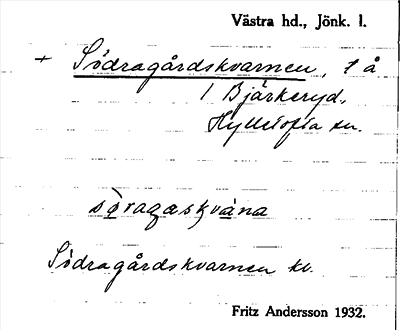 Västra hd., Jönk. l.
+ Södragårdskvarnen, t å
i Bjärkeryd,
Hylletofta sn.
söragaskvána
Södragårdskvarnen kv.
Fritz Andersson 1932.